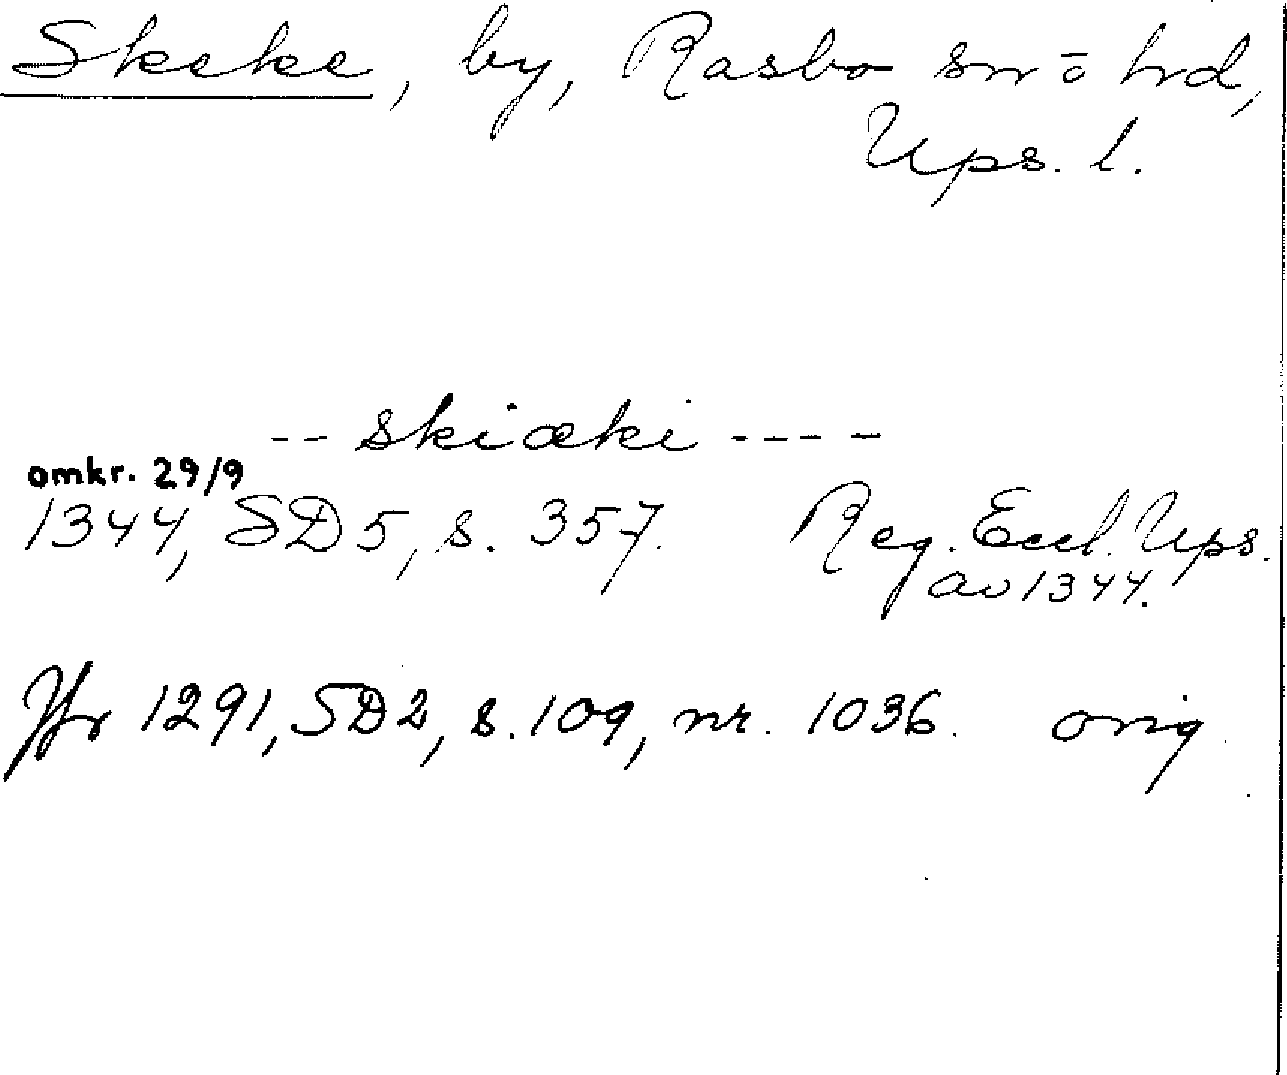 Skeke, by, Rasbo sn o hd,
Ups. l.
-- skiæki ----
omkr. 29/9
1344, SD5, s. 357. Reg. Eccl. Ups.
av 1344.
Jfr 1291, SD2, s. 109, nr. 1036. orig.